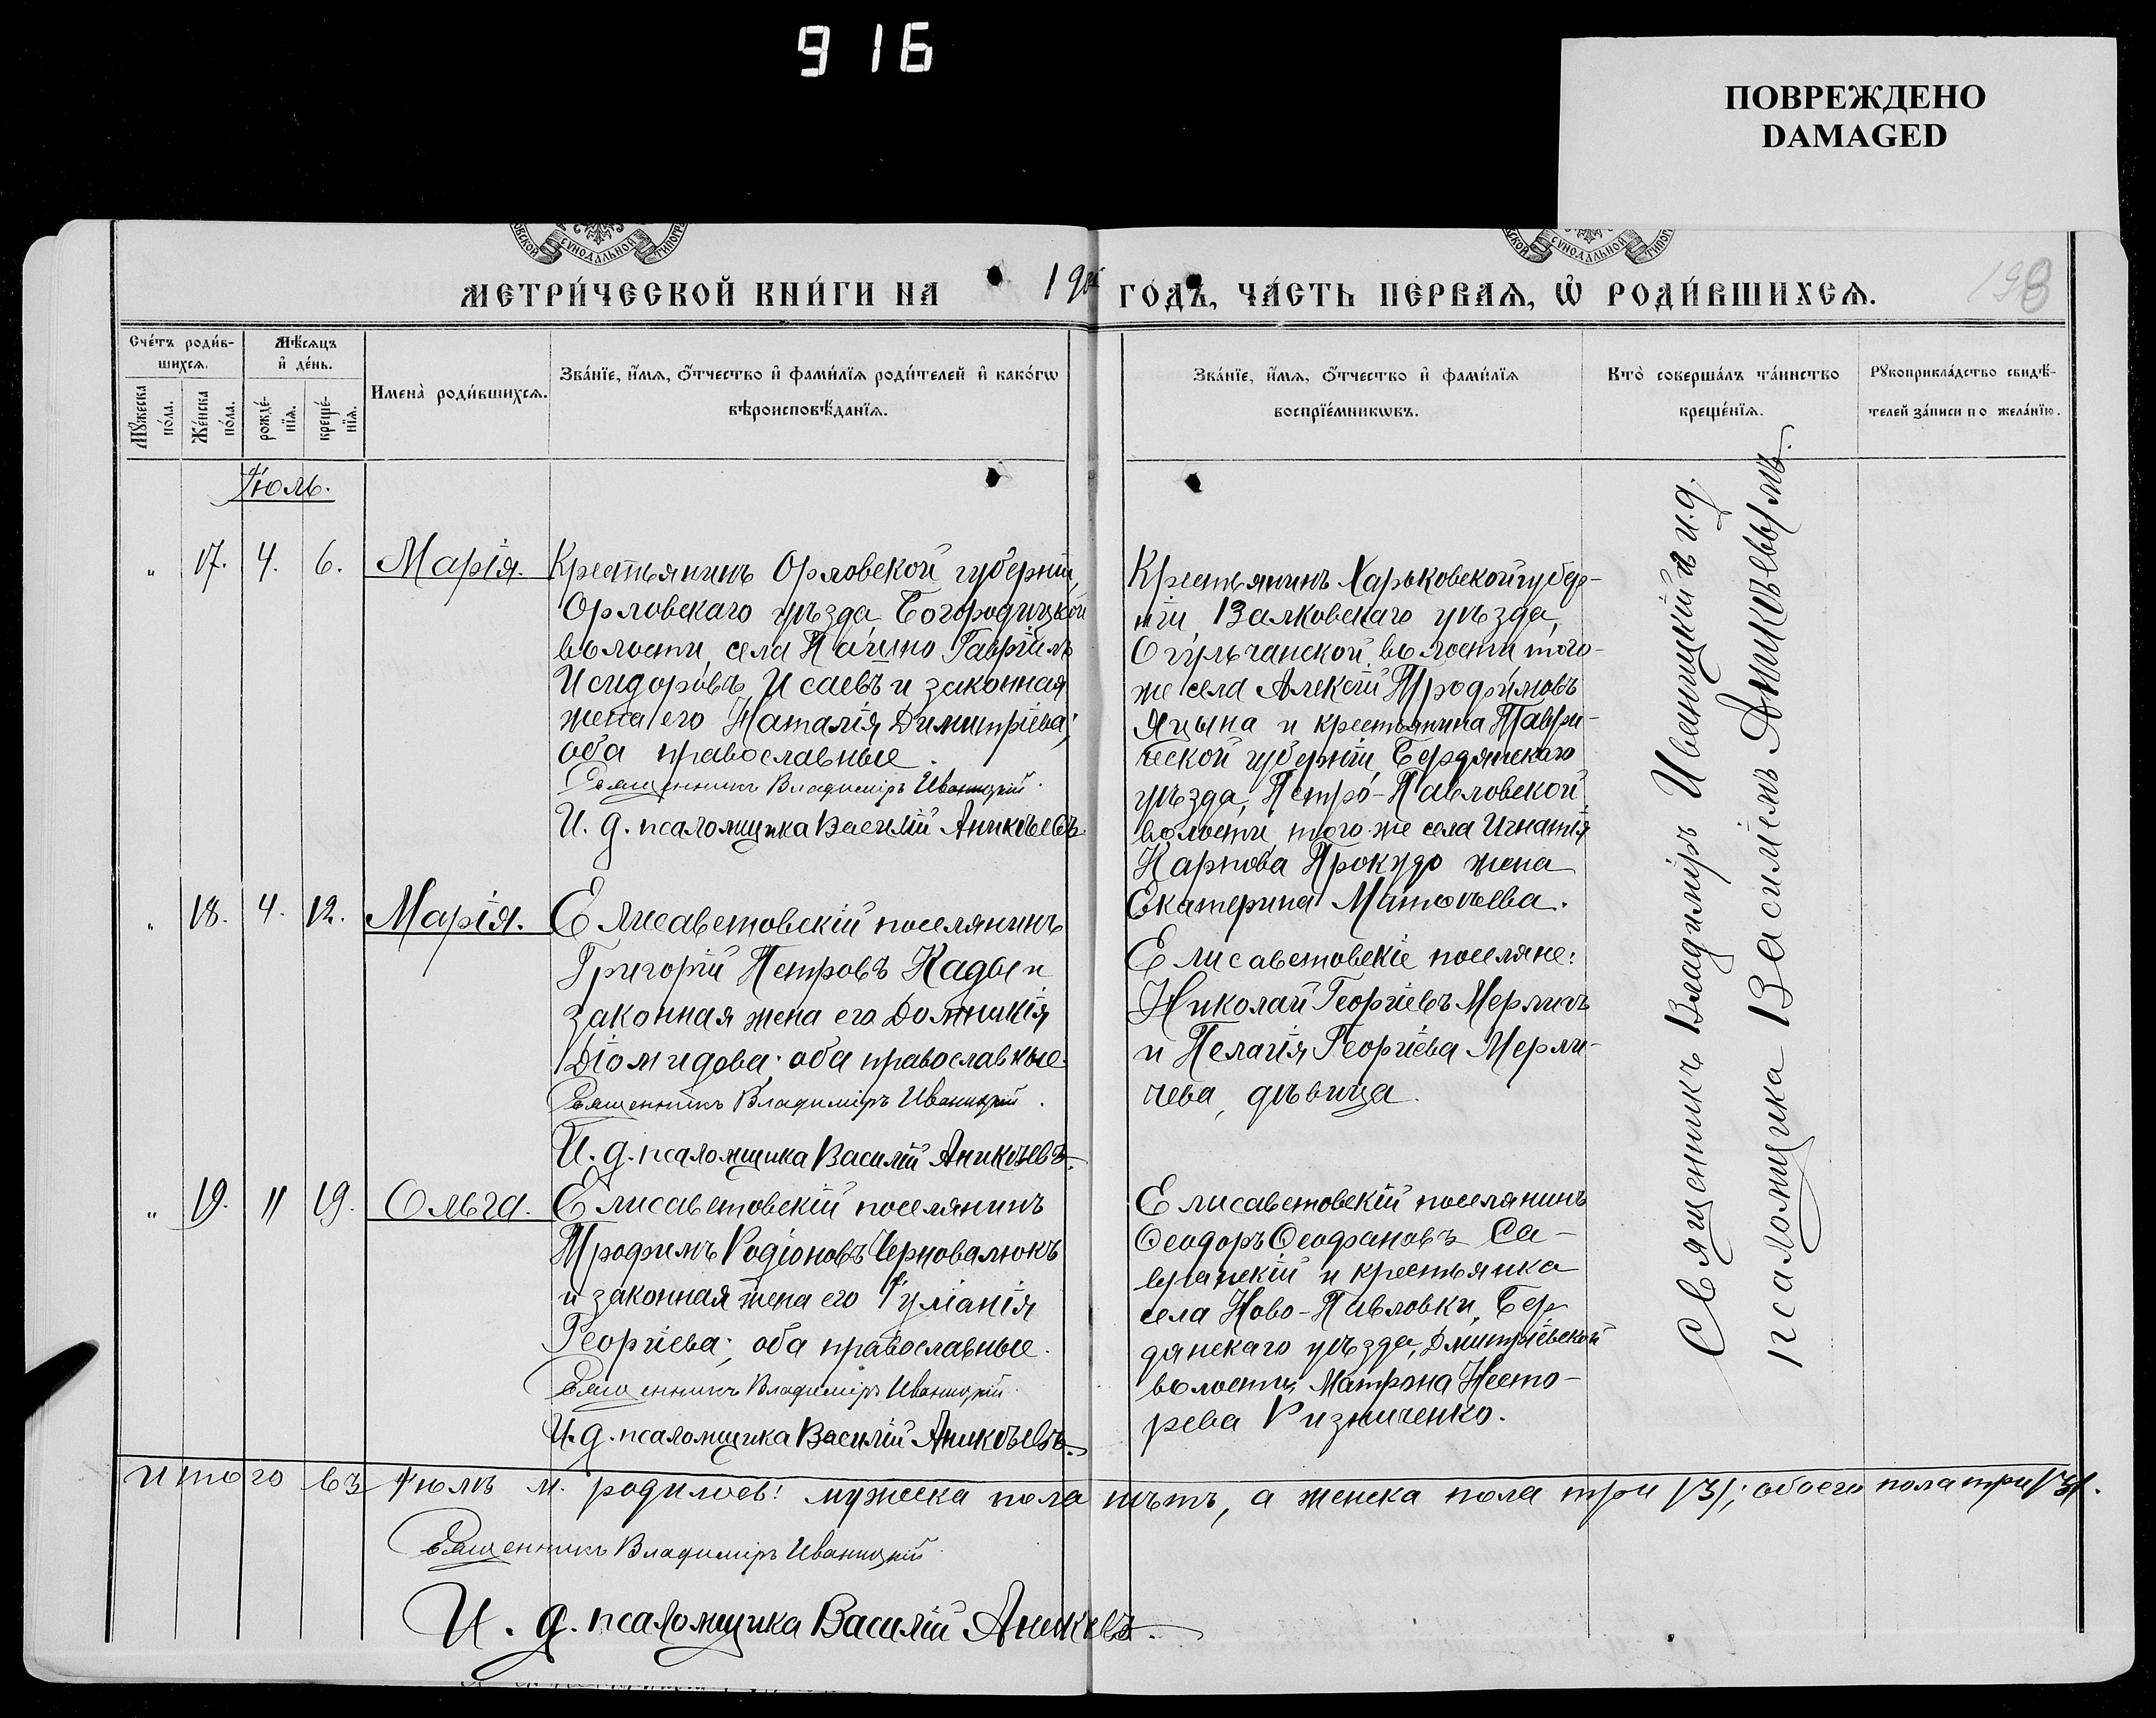 916
ПОВРЕЖДЕНО
DAMAGED
СѴНОДАЛЬНОЙ
СѴНОДАЛЬНОЙ
МЕТРИ́ЧЕСКОЙ КНИ́ГИ НА 190 ГО́ДЪ, ЧА́СТЬ ПЕ́РВАѦ, Ѡ҆ РОДИ́ВШИХСѦ.
198
Сче́тъ роди́в-
шихсѧ.
Мѣ́сѧцъ
и҆ де́нь.
Мꙋ́жеска
по́ла.
Же́нска
по́ла.
рожде́-
нїѧ.
креще́-
нїѧ.
Имена̀ роди́вшихсѧ.
Зва́нїе, и҆́мѧ, ѻ҆́тчество и҆ фами́лїѧ роди́телей и҆ како́гѡ
вѣроисповѣ́данїѧ.
Зва́нїе, и҆́мѧ, ѻ҆́тчество и҆ фами́лїѧ
воспрїе́мникѡвъ.
Кто̀ соверша́лъ та́инство
креще́нїѧ.
Рꙋкоприкла́дство свидѣ́-
телей за́писи по жела́нїю.
Іюль.
„ 17. 4. 6. Марія.
Крестьянинъ Орловской губерніи,
Орловскаго уѣзда Богородицкой
волости, села Пачино Гавріилъ
Исидоровъ Исаевъ и законная
жена его Наталія Димитріева;
оба православные.
Священникъ Владиміръ Иваницкій.
И. д. псаломщика Василій Аникѣевъ.
Крестьянинъ Харьковской губер-
ніи Валковскаго уѣзда,
Огульчанской волости того-
же села Алексій Трофимовъ
Яцына и крестьянина Таври-
ческой губерніи, Бердянскаго
уѣзда, Петро-Павловской
волости, того-же села Игнатія
Карпова Прокудо жена
Екатерина Матѳѣева.
„ 18. 4. 12. Марія.
Елисаветовскій поселянинъ
Григорій Петровъ Кадыи
законная жена его Домникія
Діомидова; оба православные.
Священникъ Владиміръ Иваницкій.
И. д. псаломщика Василій Аникѣевъ.
Елисаветовскіе поселяне:
Николай Георгіевъ Мерличъ
и Пелагія Георгіева Мерли-
чева, дѣвица.
„ 19. 11 19. Ольга.
Елисаветовскій поселянинъ
Трофимъ Родіоновъ Черновалюкъ
и законная жена его Іуліанія
Георгіева; оба православные.
Священникъ Владиміръ Иваницкій.
И. д. псаломщика Василій Аникѣевъ.
Елисаветовскій поселянинъ
Ѳеодоръ Ѳеофановъ Са-
вранскій и крестьянка
села Ново-Павловки, Бер
дянскаго уѣзда, Дмитріевской
волости, Матрона Несто-
рева Ризниченко.
Священникъ Владиміръ Иваницкій и и. д.
псаломщика Василіемъ Аникѣевымъ.
Итого въ Іюлѣ м. родилось: мужеска пола нѣтъ, а женска пола три /3/; обоего пола три /3/.
Священникъ Владиміръ Иваницкій
И. д. псаломщика Василій Аникѣевъ.